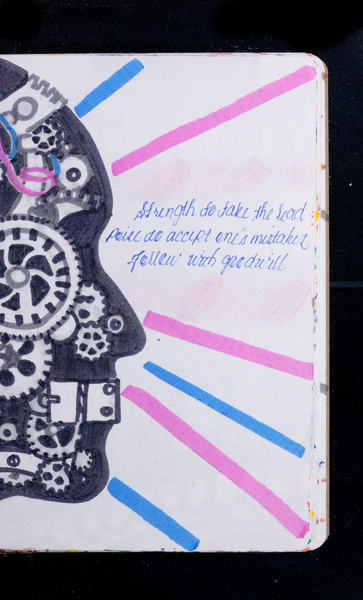 Strength to take the lead
Poise to accept one's mistakes
Follow with goodwill